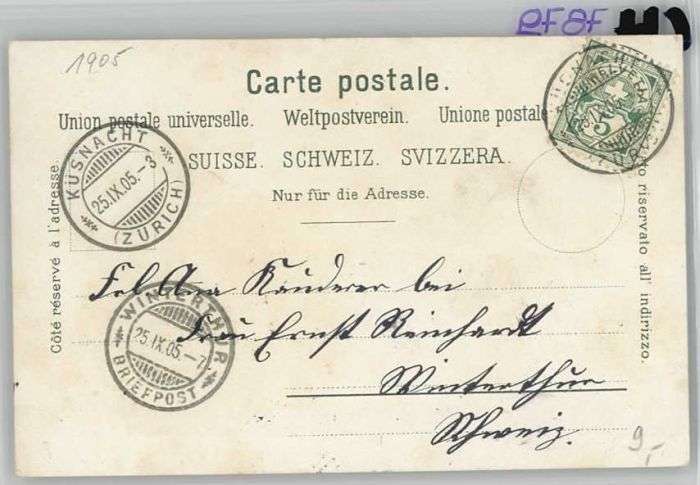 1905
Carte postale.
Union postale universelle. Weltpostverein. Unione postale
SUISSE. SCHWEIZ. SVIZZERA.
Nur für die Adresse.
Côté réservé à l'adresse.
riservato all' indirizzo.
KÜSNACHT
25.IX.05.-3
(ZÜRICH)
Frl. Ana Kauderer bei
Frau Ernst Reinhardt
Winterthur
Schweiz.
WINTERTHUR
25.IX.05.-7
BRIEFPOST
5
9,-